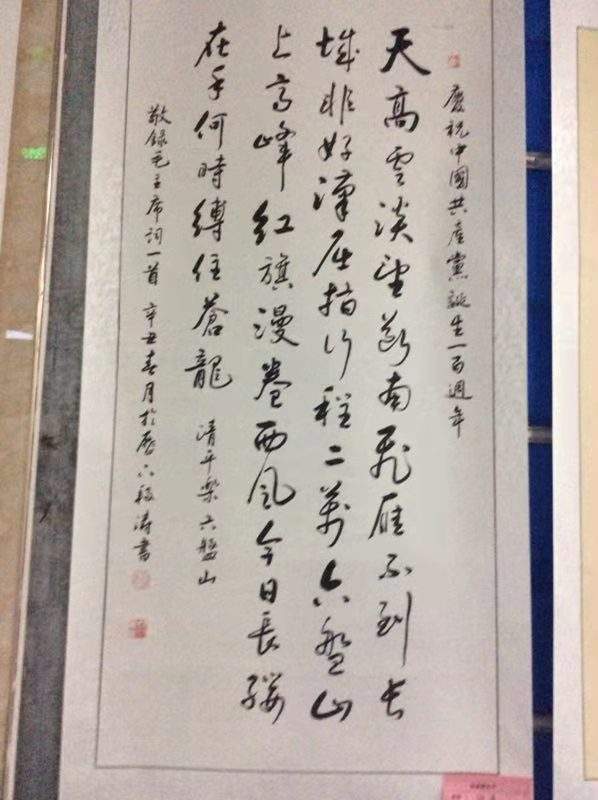 慶祝中國共產黨誕生一百週年
天高雲淡望斷南飛雁不到長
城非好漢屈指行程二萬六盤山
上高峰紅旗漫卷西風今日長纓
在手何時縛住蒼龍 清平樂 六盤山
敬録毛主席詞一首 辛丑春月於歷下 段涛書